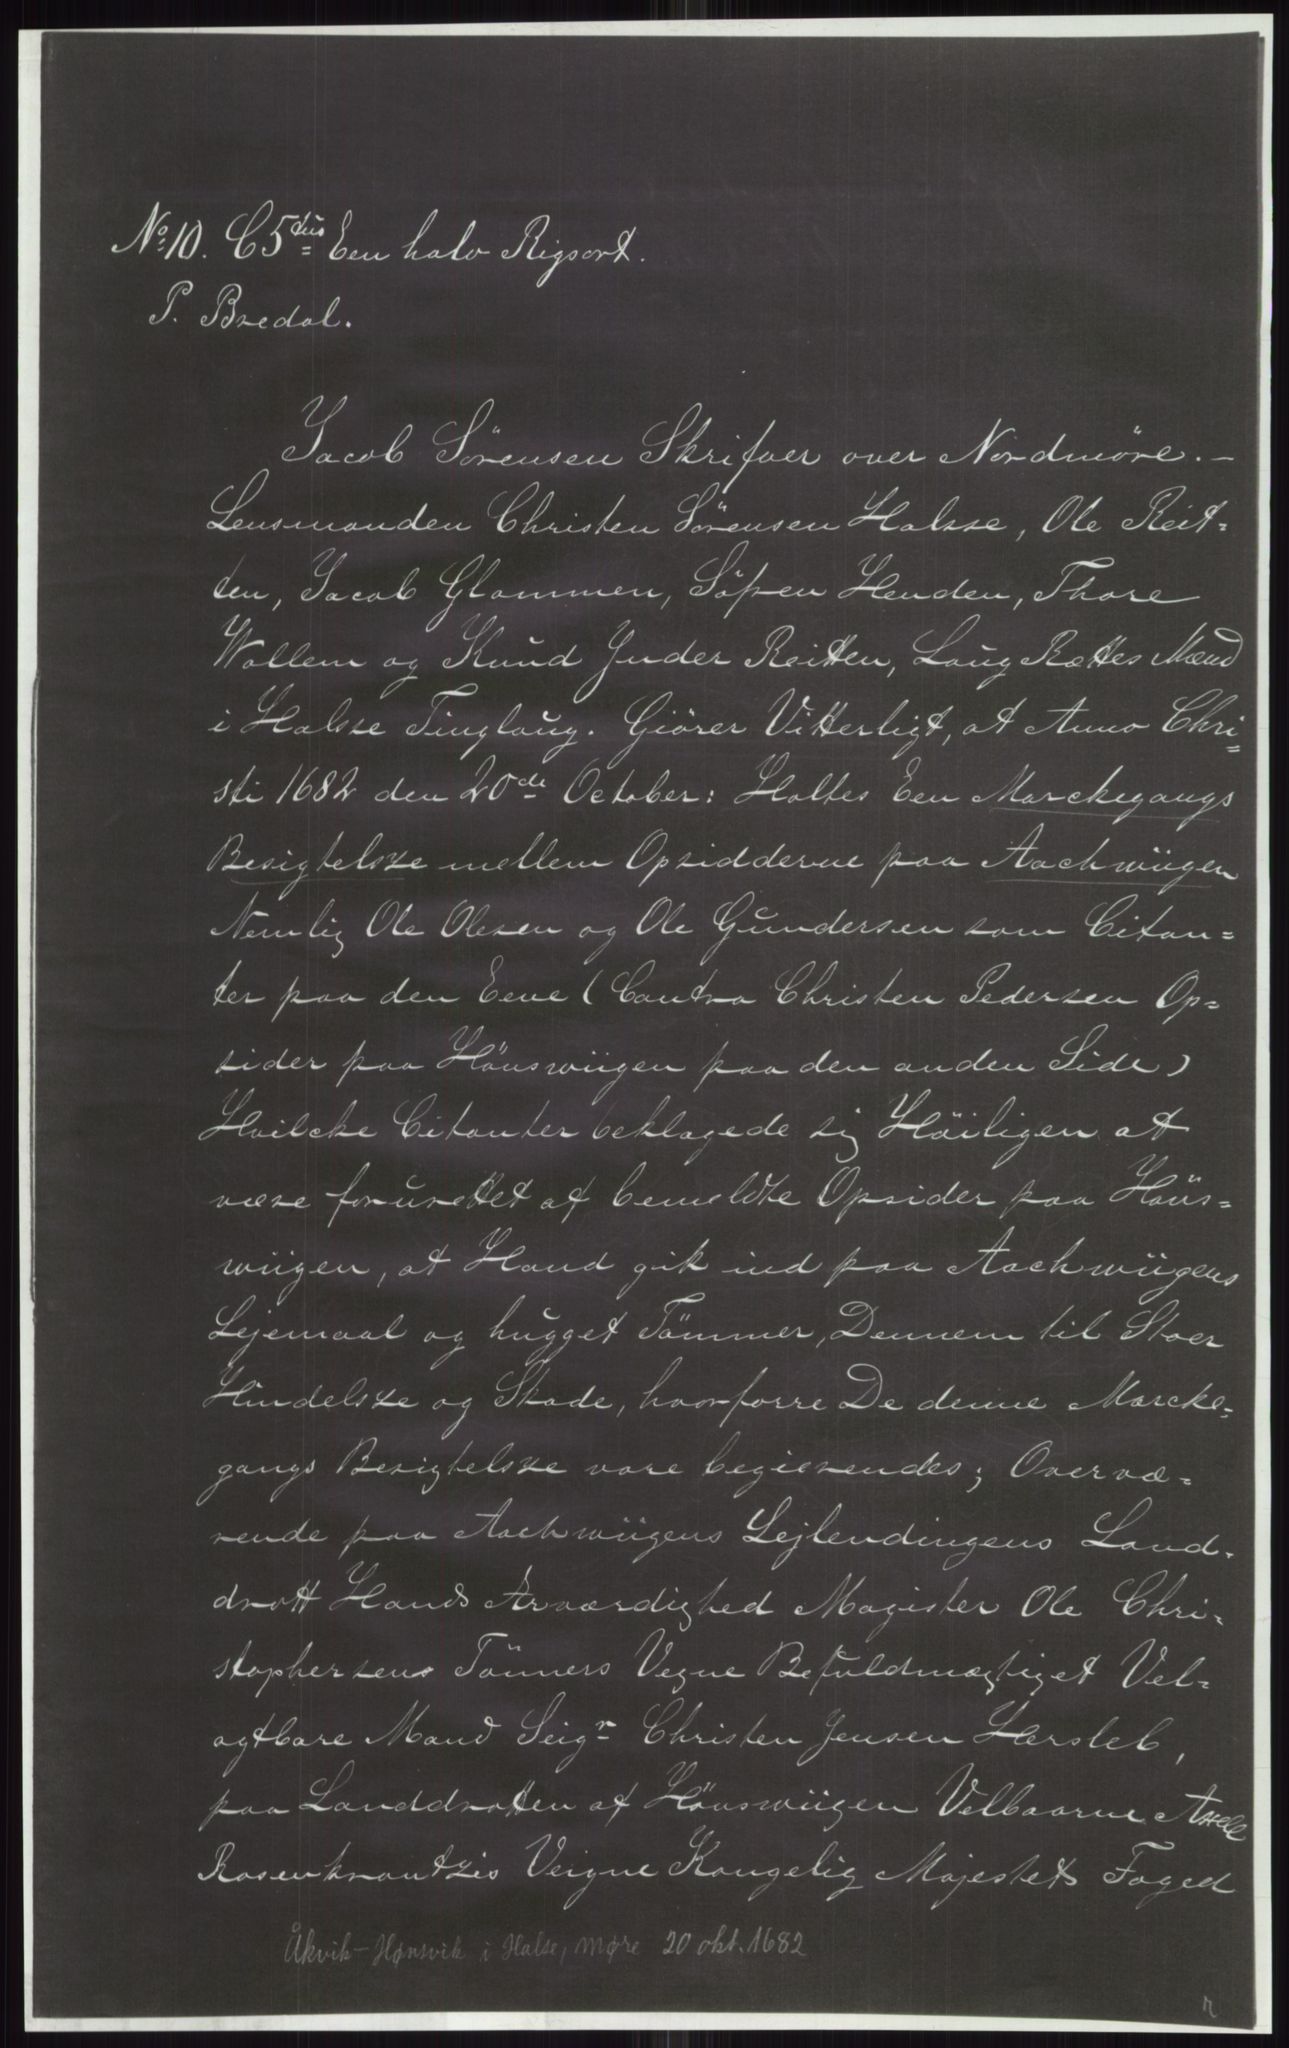 No 10. C5tus Een halv Rigsort.
P. Bredal.
Jacob Sörensen Skrifver over Nordmöre. —
Lensmanden Christen Sörensen Halsze, Ole Reit=
ten, Jacob Glammen, Söfren Henden, Thore
Wollem og Knud Ynder Reitten, Laug Rettes Mænd
i Halsze Tinglaug. Giörer Vitterligt, at Anno Chri=
sti 1682 den 20de October: Holtes Een Marckegangs
Besigtelsze mellem Opsidderne paa Aachwiigen
Nemlig Ole Olesen og Ole Gundersen som Citan=
ter paa den Eene (Contra Christen Pedersen Op=
sider paa Hönswiigen paa den anden Side)
Hvilcke Citanter beklagede sig Höiligen at
være forurettet af bemeldte Opsider paa Höns=
wiigen, at Hand gik ind paa Aachwiigens
Lejemaal og hugget Tömmer, Dennem til Stoer
Hindelsze og Skade, hvorforre De denne Marcke=
gangs Besigtelsze vare begierendes; Overvæ=
rende paa Aachwiigens Lejlendingens Land=
drott Hands Ærværdighed Magister Ole Chri=
stophersens Tönners Vegne Befuldmægtiget Vel=
agtbare Mand Seigr Christen Jensen Hersleb,
paa Landdrotten af Hönswiigen Velbaarne Axell
Rosenkrantzis Veigne Kongelig Majestets Foged
Åkvik - Hønsvik i Halse, Møre 20 okt. 1682